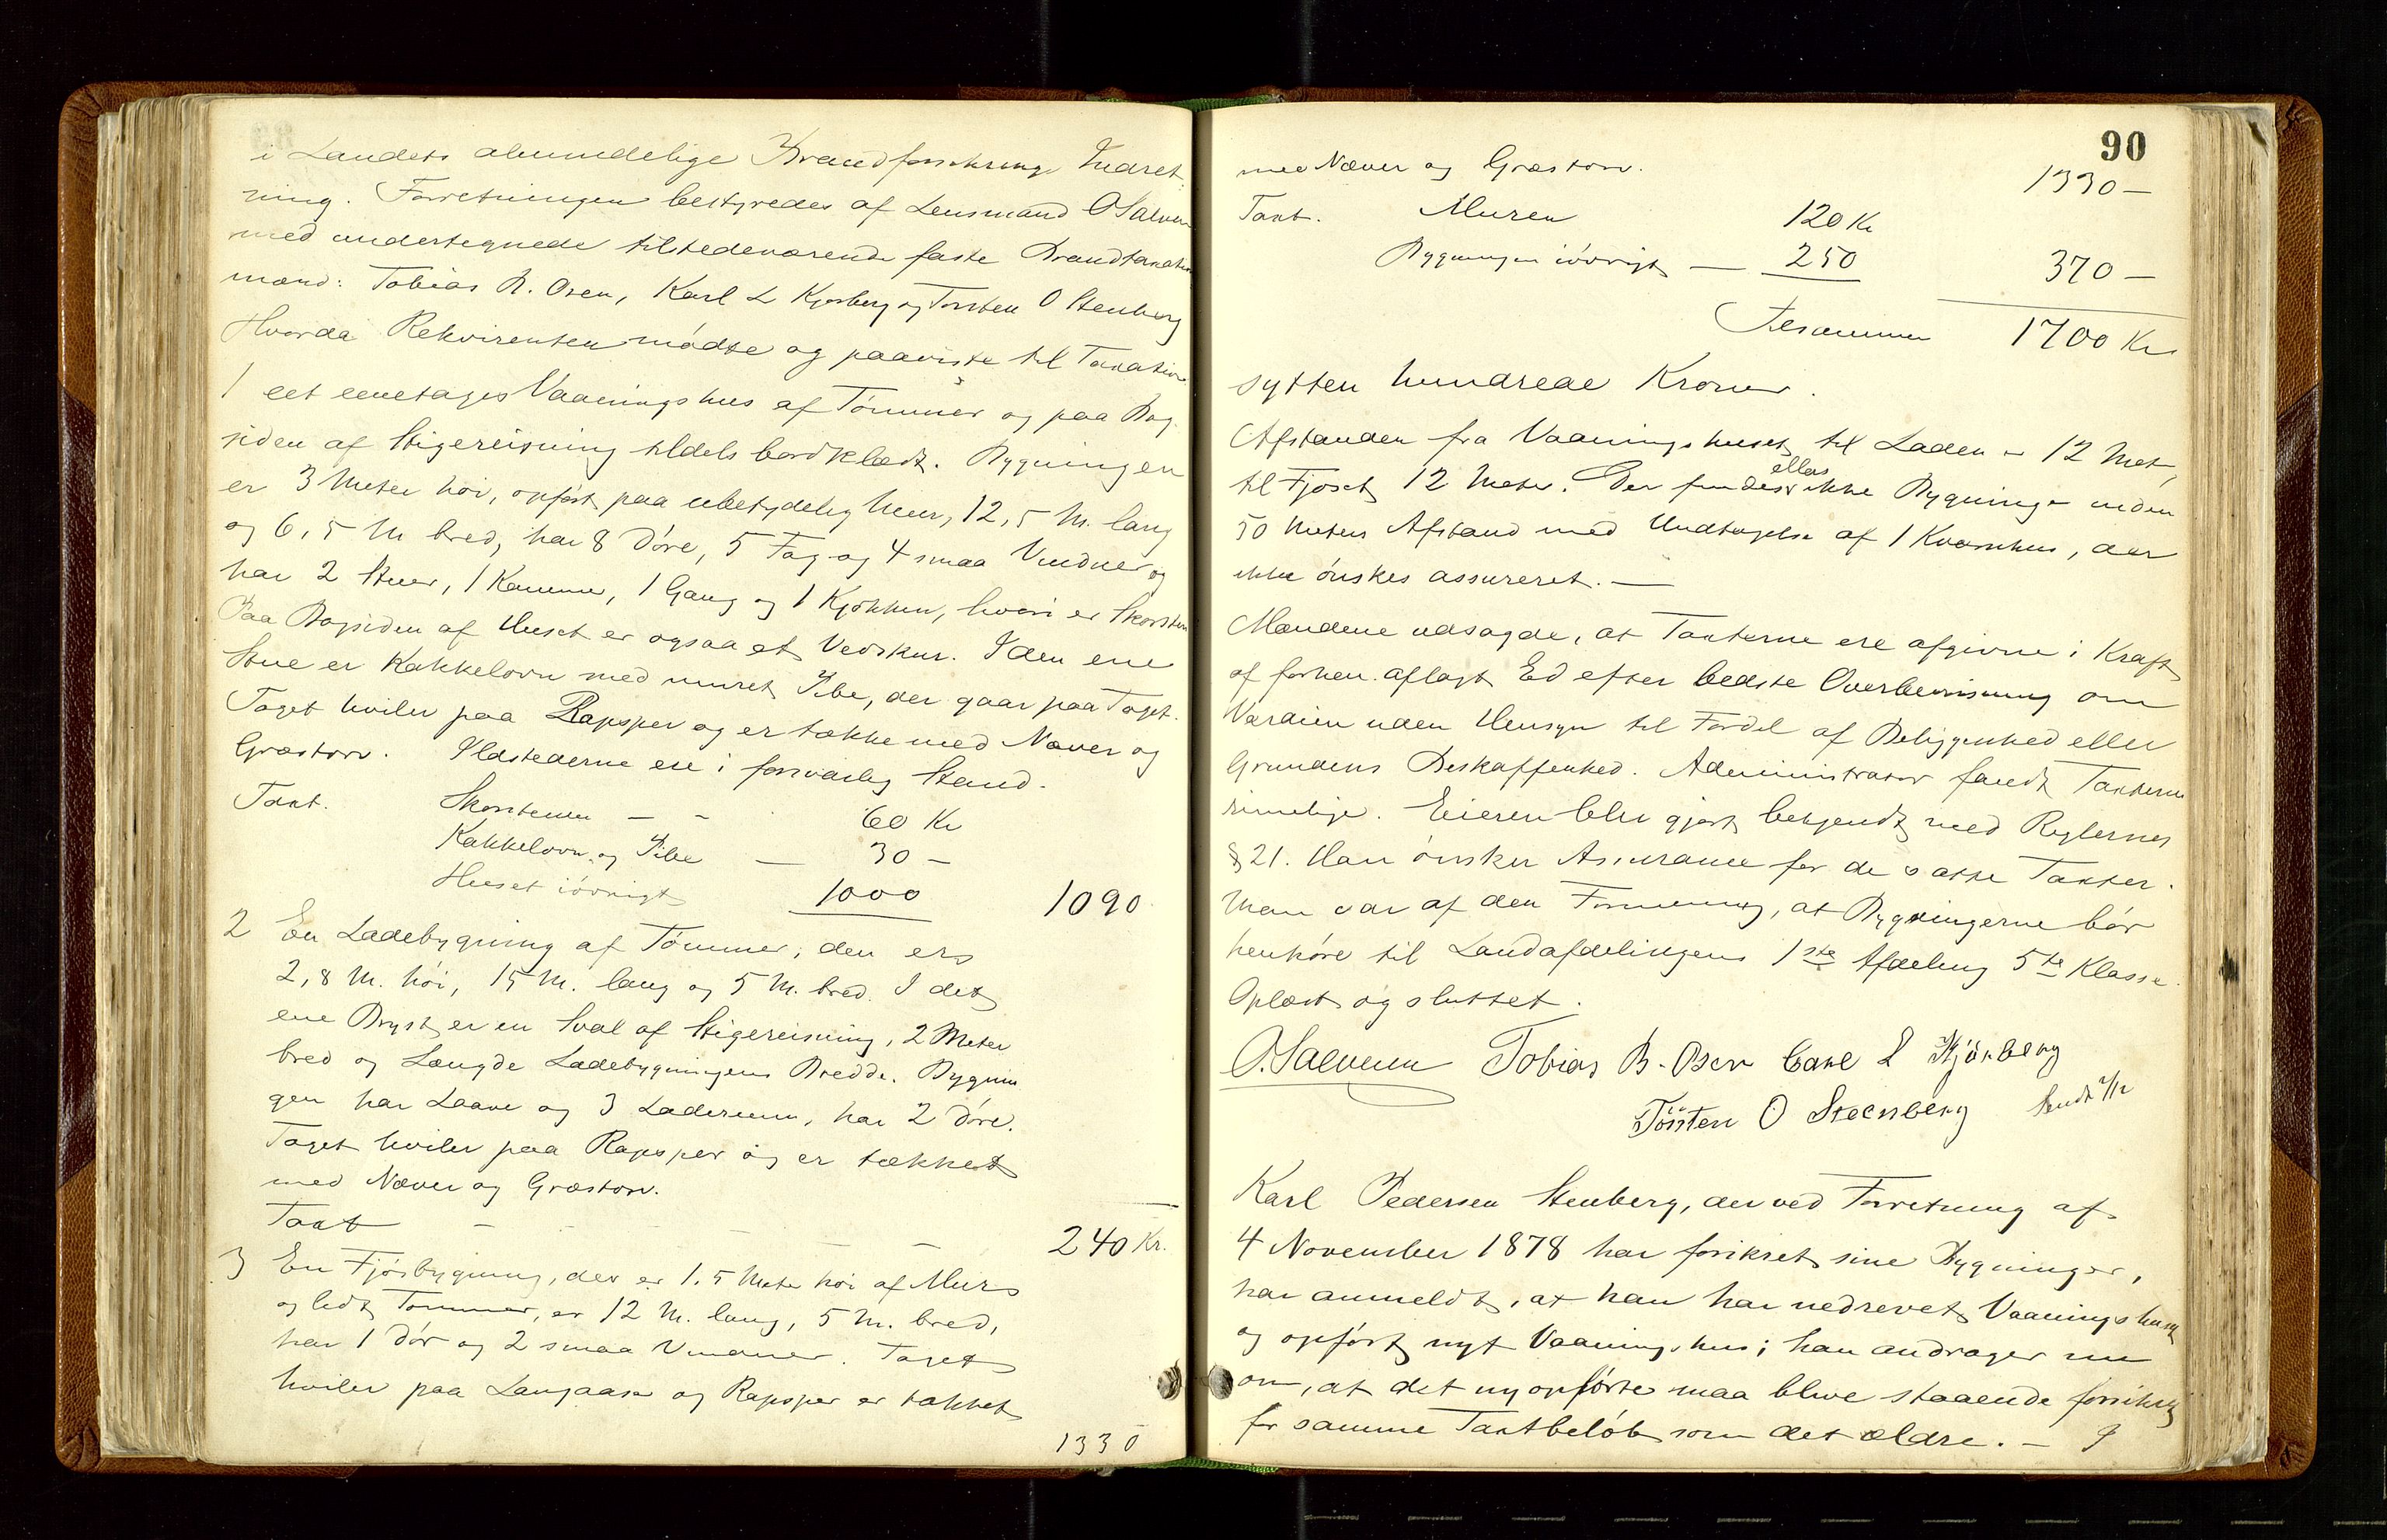 i Landets almindelige Brandforsikrings Indret-
ning. Forretningen bestyredes af Lensmand O Salvesen
med undertegnede tilstedeværende faste Brandtaxations
mænd: Tobias B. Osen, Karl L Kjosberg og Torsten O Stenberg
Hvorda Rekvirenten mødte og paaviste til Taxation
1 eet eenetages Vaaningshus af Tømmer og paa Bag-
siden af Stigereisning tildels bordklædt. Bygningen
er 3 Meter høi, opført paa ubetydelig Muur, 12,5 M. lang
og 6,5 M bred, har 8 Døre, 5 Fag og 4 smaa Vinduer og
har 2 Stuer, 1 Kammer, 1 Gang og 1 Kjøkken, hvori er Skorsten
Paa Bagsiden af Huset er ogsaa et Vedskur. I den ene
Stue er Kakkelovn med muret Pibe, der gaar paa Taget.
Taget hviler paa Rapsper og er tække med Næver og
Græstorv. Ildstederne ere i forsvarlig Stand.
Taxt. Skorstenen — - 60 Kr
Kakkelovn og Pibe — 30 —
Huset iøvrigt 1000 1090
2 En Ladebygning af Tømmer, den er
2,8 M. høi, 15 M. lang og 5 M. bred. I det
ene Bryst er en Sval af Stigereisning, 2 Meter
bred og Længde Ladebygningens Bredde. Bygnin
gen har Laave og 3 Laderum, har 2 Døre.
Taget hviler paa Rapsper og er tækket
med Næver og Græstorv.
Taxt — — — 240 Kr.
3 En Fjøsbygning, der er 1,5 Meter høi af Mur
og lidt Tømmer, er 12 M. lang, 5 M. bred,
har 1 Dør og 2 smaa Vinduer. Taget
hviler paa Langaase og Rapsper er tækket
1330
90
med Næver og Græstorv. 1330 —
Taxt. Muren 120 Kr
Bygningen iøvrigt — 250 370 —
Tilsammen 1700 Kr
sytten hundrede Kroner.
Afstanden fra Vaaningshuset til Laden er 12 Met,
til Fjøset 12 Meter. Der findes ellers ikke Bygninger inden
50 Meters Afstand med Undtagelse af 1 Kvernhus, der
ikke ønskes assureret. —
Mændene udsagde, at Taxterne ere afgivne i Kraft
af forhen aflagt Ed efter bedste Overbevisning om
Værdien uden Hensyn til Fordel af Beliggenhed eller
Grundens Beskaffenhed. Administrator fandt Taxterne
rimelige. Eieren blev gjort bekjendt med Reglernes
§ 21. Han ønsker Assurance for de satte Taxter.
Man var af den Formening, at Bygningerne bør
henhøre til Landafdelingens 1ste Afdeling 5te Klasse.
Oplæst og sluttet.
O. Salvesen Tobias B. Osen Carl L Kjösberg
Törsten O Steenberg Sendt
Karl Pedersen Stenberg, der ved Forretning af
4 November 1878 har forsikret sine Bygninger,
har anmeldt, at han har nedrevet Vaaningshuset
og opført nyt Vaaningshus; han andrager nu
om, at det nyopførte maa blive staaende forsikret
for samme Taxtbeløb som det ældre. — I